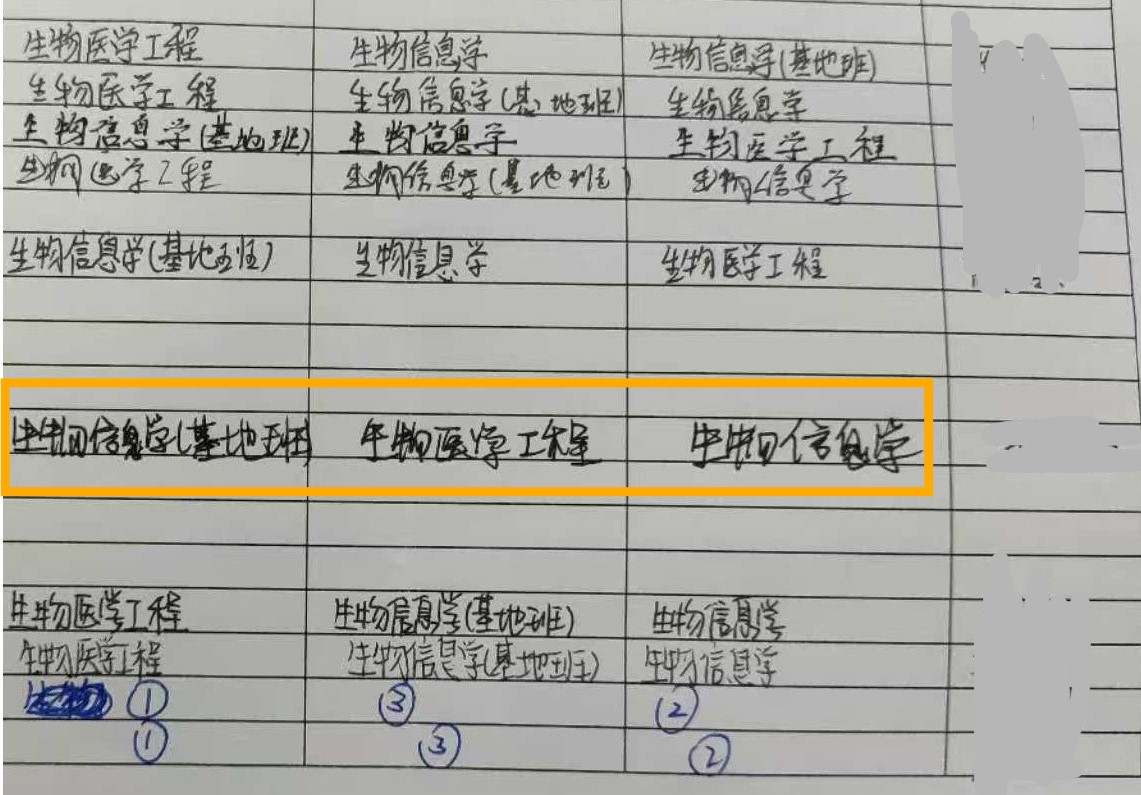 生物医学工程 生物信息学 生物信息学(基地班)
生物医学工程 生物信息学(基地班) 生物信息学
生物信息学(基地班) 生物信息学 生物医学工程
生物医学工程 生物信息学(基地班) 生物信息学
生物信息学(基地班) 生物信息学 生物医学工程
生物信息学(基地班) 生物医学工程 生物信息学
生物医学工程 生物信息学(基地班) 生物信息学
生物医学工程 生物信息学(基地班) 生物信息学
① ③ ②
① ③ ②